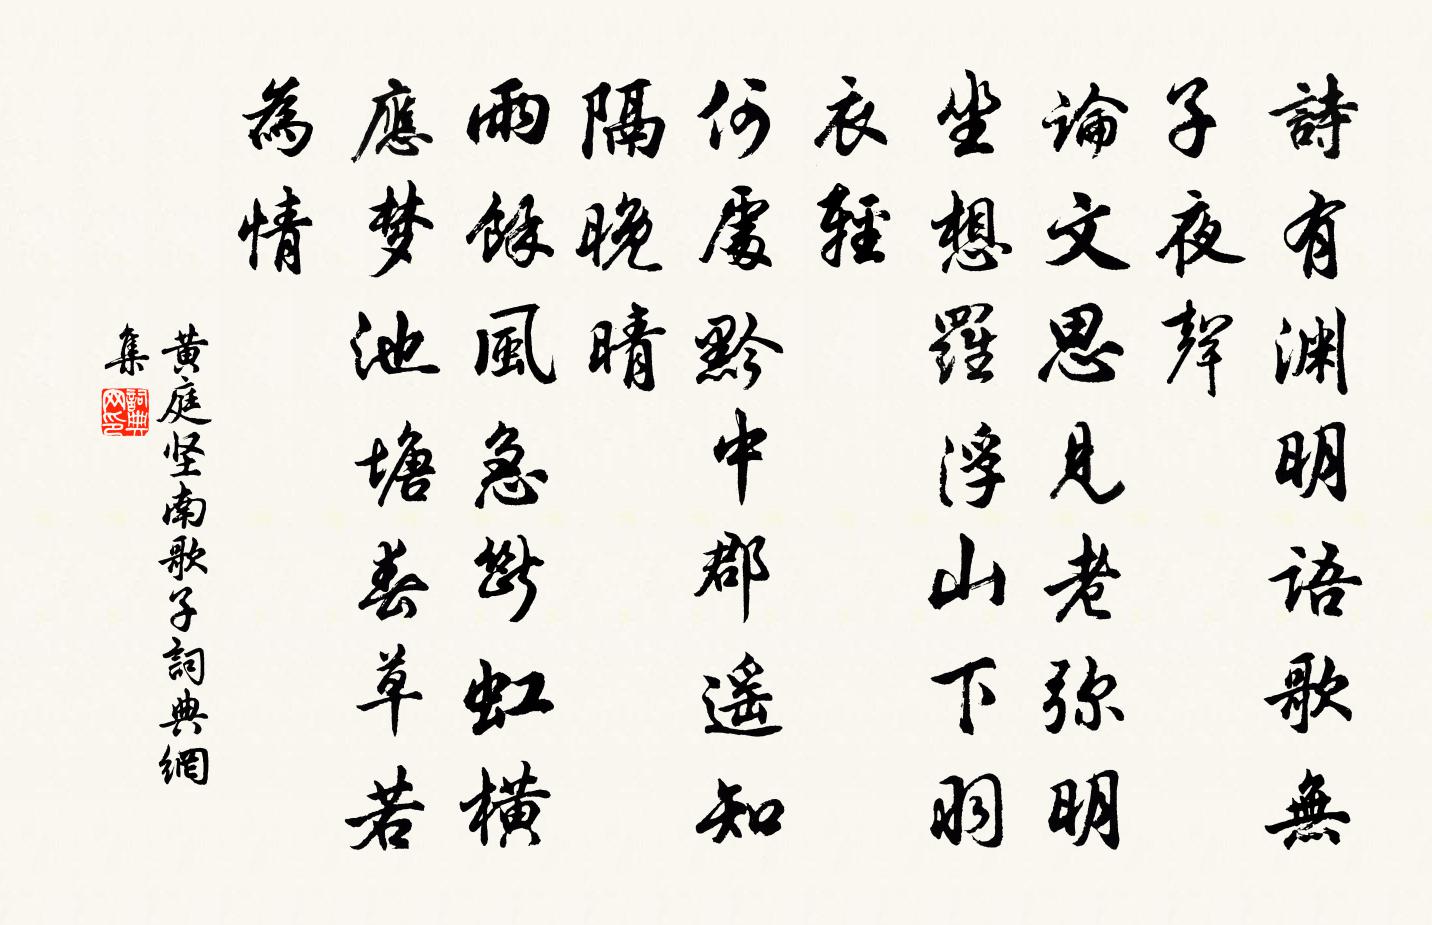 詩有渊明語歌無
子夜聲
论文思見老弥明
坐想羅浮山下羽
衣輕
何處黔中郡遥知
隔晚晴
雨餘風急斷虹横
應梦池塘春草若
為情
黄庭坚南歌子詞典網
集
詞典网印